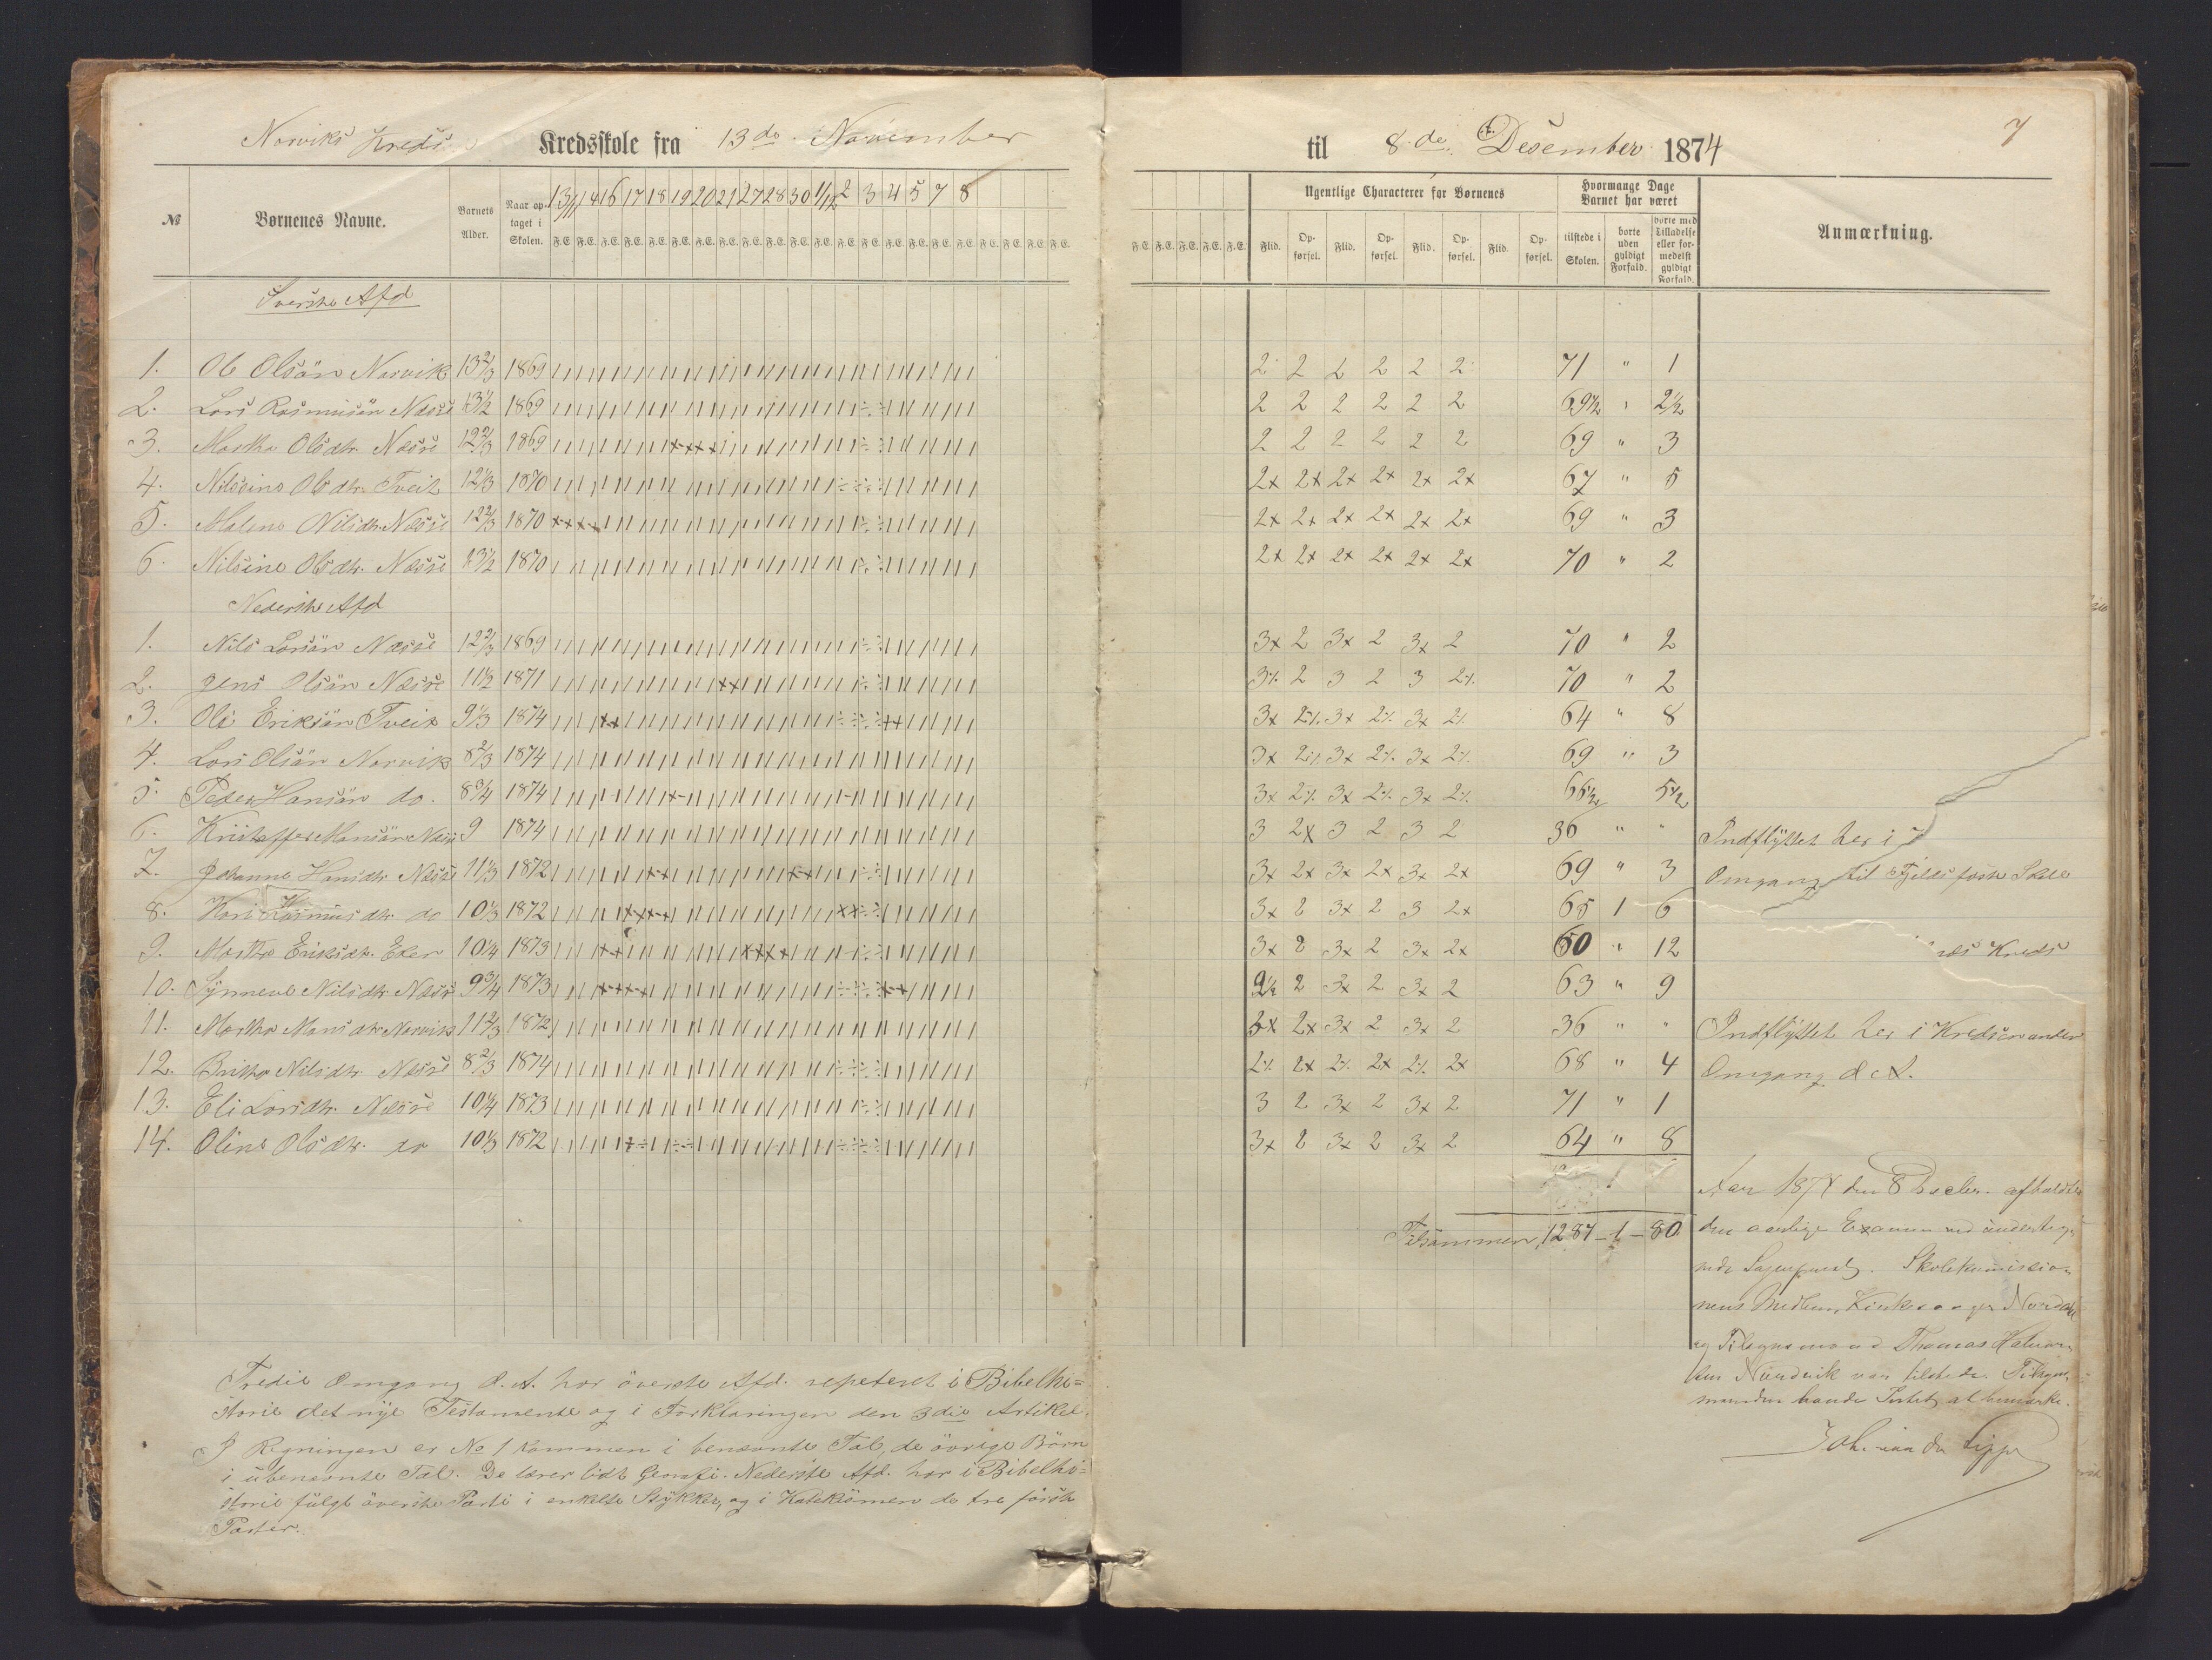 Norviks Kreds Kredsskole fra 13de November
til 8de Desember 1874
7
№ Børnenes Navne. Barnets Alder. Naar optaget i Skolen. 13/11 14 16 17 18 19 20 21 27 28 30 1/12 2 3 4 5 7 8
F.E. F.E. F.E. F.E. F.E. F.E. F.E. F.E. F.E. F.E. F.E. F.E. F.E. F.E. F.E. F.E. F.E. F.E. F.E. F.E. F.E. F.E.
F.E. F.E. F.E. F.E. F.E.
Ugentlige Characterer for Børnenes
Flid. Opførsel. Flid. Opførsel. Flid. Opførsel. Flid. Opførsel.
Hvormange Dage Barnet har været
tilstede i Skolen. borte uden gyldigt Forfald. borte med Tilladelse eller formedelst gyldigt Forfald.
Anmærkning.
Øverste Afd
1. Ole Olsön Norvik 13 2/3 1869 2 2 2 2 2 2 71 " 1
2. Lars Rasmusön Næsse 13 1/2 1869 2 2 2 2 2 2 69 1/2 " 2 1/2
3. Martha Olsdtr. Næsse 12 2/3 1869 2 2 2 2 2 2 69 " 3
4. Nilsine Olsdtr. Tveit 12 1/3 1870 2x 2x 2x 2x 2x 2x 67 " 5
5. Malene Nilsdtr. Næsse 12 2/3 1870 2x 2x 2x 2x 2x 2x 69 " 3
6. Nilsine Olsdtr. Næsse 13 1/2 1870 2x 2x 2x 2x 2x 2x 70 " 2
Nederste Afd
1. Nils Larsön Næsse 12 2/3 1869 3x 2 3x 2 3x 2 70 " 2
2. Jens Olsön Næsse 11 1/2 1871 3% 2 3 2 3 2% 70 " 2
3. Ole Eriksön Tveit 9 1/3 1874 3x 2% 3x 2% 3x 2% 64 " 8
4. Lars Olsön Norvik 8 2/3 1874 3x 2% 3x 2% 3x 2% 69 " 3
5. Peder Hansön do. 8 3/4 1874 3x 2% 3x 2% 3x 2% 66 1/2 5 1/2
6. Kristoffer Monsön Næsse 9 1874 3 2x 3 2 3 2 36 " " Indflyttet her i
7. Johanne Hansdtr. Næsse 11 1/3 1872 3x 2x 3x 2x 3x 2x 69 " 3 Omgang til Fjelds faste Skole
8. Kari Rasmusdtr. do 10 1/3 1872 3x 2 3x 2 3 2x 65 1 6
9. Martha Eriksdtr. 10 1/4 1873 3x 2 3x 2 3x 2x 60 " 12 Kreds
10. Synneve Nilsdtr. Næsse 9 3/4 1873 2 3x 2 3x 2 63 " 9
11. Martha Monsdtr. Norvik 11 2/3 1872 3x 2x 3x 2 3x 2 36 " " Indflyttet her i Kredsen anden
12. Britha Nilsdtr. Næsse 8 2/3 1874 2% 2x 2% 2x 2% 2x 68 " 4 Omgang d. A.
13. Eli Larsdtr. Næsse 10 1/4 1873 3 2 3x 2 3x 2 71 " 1
14. Oline Olsdtr. do 10 1/3 1872 3x 2 3x 2 3x 2 64 " 8
Tilsammen 1287 – 1 – 80
Aar 1874 den 8 Decbr. afholdtes
den aarlige Examen ved underteg-
nede Sogneprest. Skolekommissio-
nens Medlem, Kirkesanger
og Tilsynsmand Thomas
sen Nordvik var tilstede. Tilsyns-
manden havde Intet at bemærke.
Joh. van der Lippe
Tredie Omgang d. A. har överste Afd. repeteret i Bibelhi=
storie det nye Testamente og i Forklaringen den 3die Artikel.
I Regningen er No 1 kommen i benævnte Tal, de övrige Börn
i ubenævnte Tal. De lærer lidt Geografi. Nederste Afd. har i Bibelhi=
storie fulgt överste Parti i enkelte Stykker, og i Katekismen de tre förste
Parter.